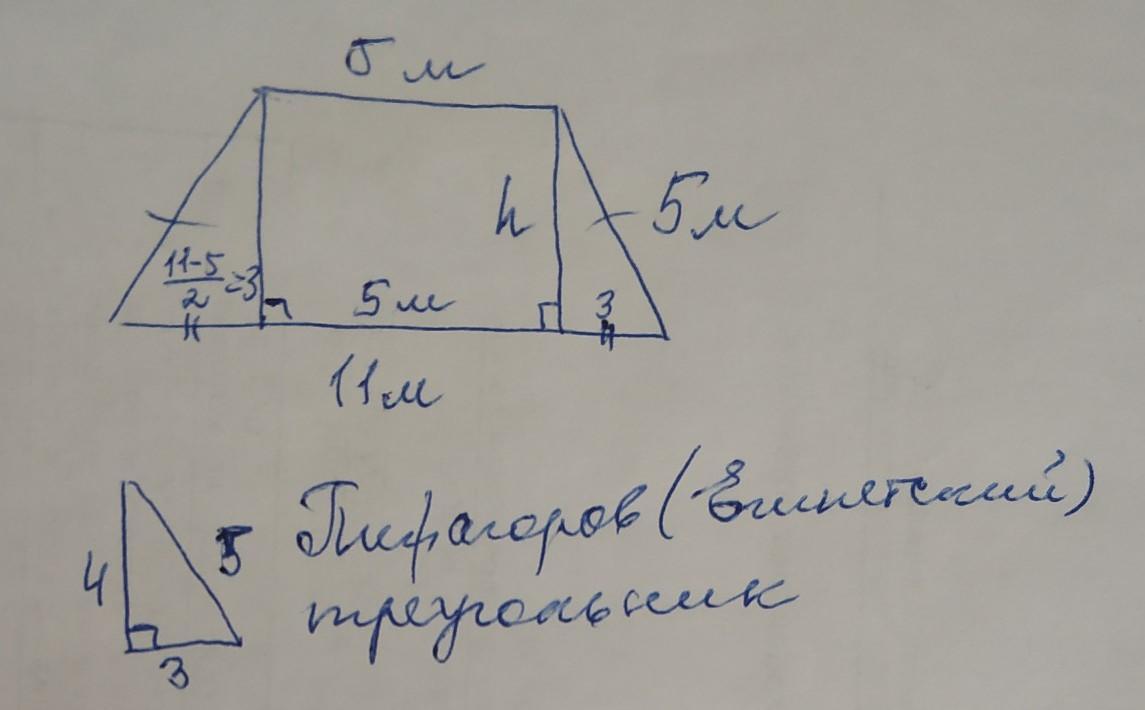 5 м
h
5м
11-5/2=3
5м
3
11м
4
5
3
Пифагоров (Египетский)
треугольник